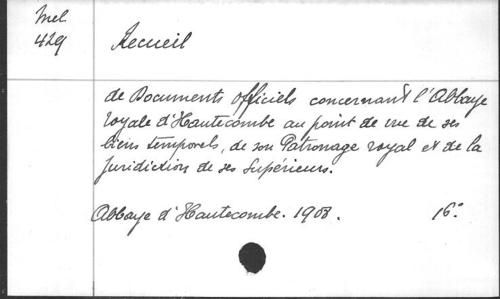 Mel.
429
Recueil
de Documents officiels concernant l'Abbaye
royale d'Hautecombe au point de vue de ses
biens temporels, de son Patronage royal et de la
Juridiction de ses Supérieurs.
Abbaye d'Hautecombe. 1908. 16°